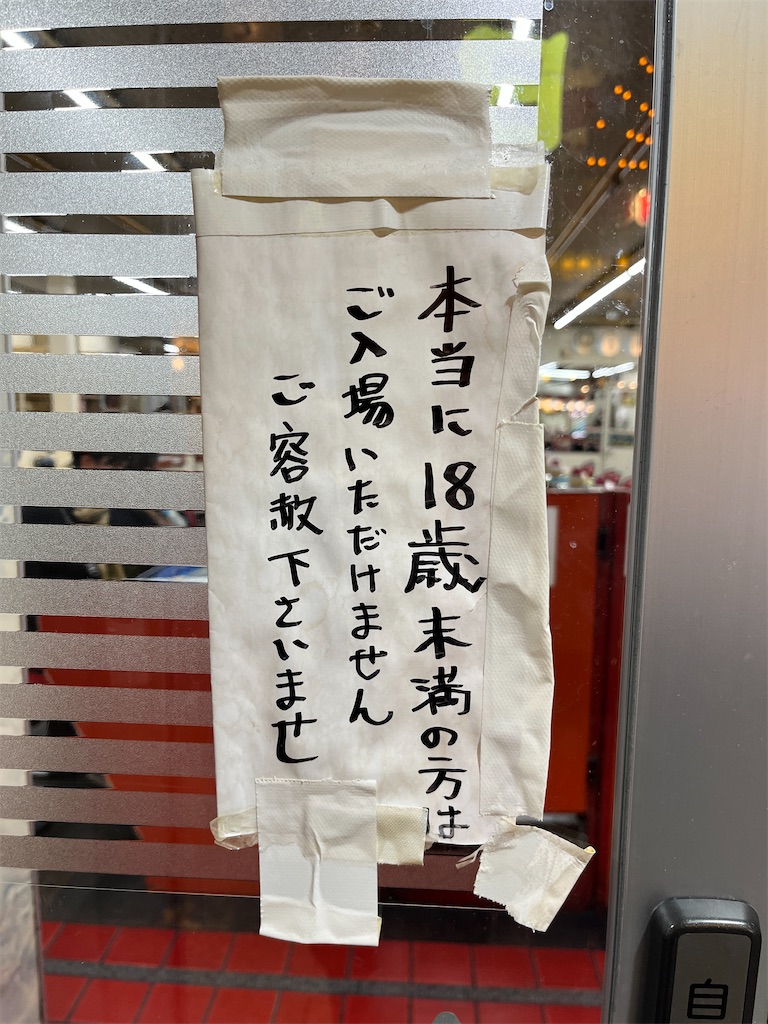 本当に18歳未満の方は
ご入場いただけません
ご容赦下さいませ
自